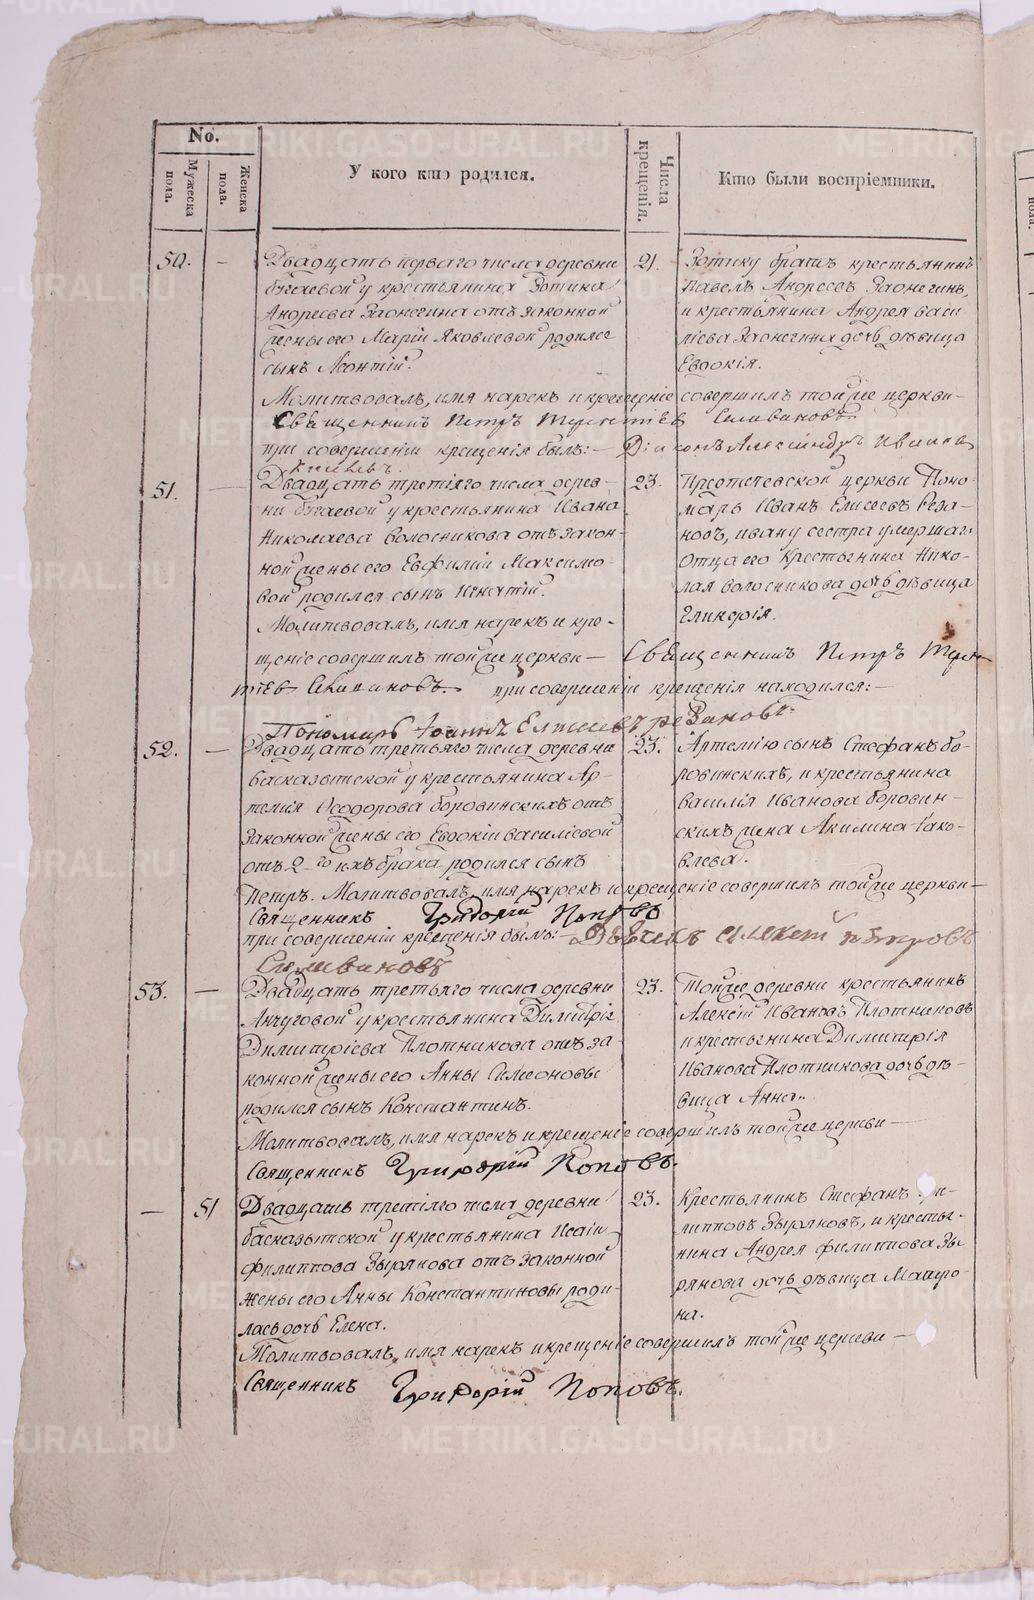 No.
Мужеска пола.
Женска пола.
У кого кто родился.
Числа крещенія.
Кто были воспріемники.
50. — Двадцать перваго числа деревни
бугаевой у крестьянина Зотика
Андреева Заонегина отъ законной
жены его Маріи Яковлевой родился
сынъ Леонтій.
21. Зотику братъ крестьянинъ
Павелъ Андреевъ Заонегинъ,
и крестьянина Андрея васи
ліева Заонегина дочь дѣвица
Евдокія.
Молитвовалъ, имя нарекъ и крещеніе совершилъ тойже церкви —
Священникъ Петръ Терентіев Селивановъ.
при совершеніи крещенія былъ: — Діаконъ Александръ
51. — Двадцать третіяго числа дерев-
ни бугаевой у крестьянина Ивана
Николаева волосникова отъ закон-
ной жены его Евфиміи Максимо-
вой родился сынъ Игнатій.
23. Предтечевской церкви Поно-
марь Иванъ Елисеевъ Реза-
новъ, ивану сестра умершаго
отца его крестьянина Нико-
лая волосникова дочь дѣвица
Гликерія.
Молитвовалъ, имя нарекъ и кре-
щеніе совершилъ тойже церкви — Священникъ Петръ Терен
тіев Селивановъ. при совершеніи крещенія находился: —
Пономарь Іоаннъ Елисеевъ резановъ.
52. — Двадцать третьяго числа деревни
басказытской у крестьянина Ар-
темия Ѳеодорова боровинскихъ отъ
законной жены его Евдокіи василіевой
отъ 2-го ихъ брака родился сынъ
Петръ.
23. Артемію сынъ Стефанъ бо-
ровинскихъ, и крестьянина
василія Иванова боровин-
скихъ жена Акилина Іако-
влева.
Молитвовалъ имя нарекъ и крещеніе совершилъ тойже церкви —
Священникъ Григорій Поповъ
при совершеніи крещенія былъ: — Дьячекъ алексей пѣтровъ
Селивановъ
53. — Двадцать третьяго числа деревни
Анчуговой у крестьянина Димитрія
Димитріева Плотникова отъ за-
конной жены его Анны Симеоновы
родился сынъ Константинъ.
23. Тойже деревни крестьянинъ
Алексій Ивановъ Плотниковъ
и крестьянина Димитрія
Иванова Плотникова дочь дѣ-
вица Анна.
Молитвовалъ, имя нарекъ и крещеніе совершилъ тойже церкви —
Священникъ Григорій Поповъ.
— 51 Двадцать третіяго числа деревни
басказытской у крестьянина Исаіи
филиппова Зырянова отъ законной
жены его Анны Константиновы роди-
лась дочь Елена.
23. Крестьянинъ Стефанъ Фи-
липповъ Зыряновъ, и крестья-
нина Андрея филиппова Зы-
рянова дочь дѣвица Матро-
на.
Молитвовалъ, имя нарекъ и крещеніе совершилъ тойже церкви —
Священникъ Григорій Поповъ.
METRIKI.GASO-URAL.RU